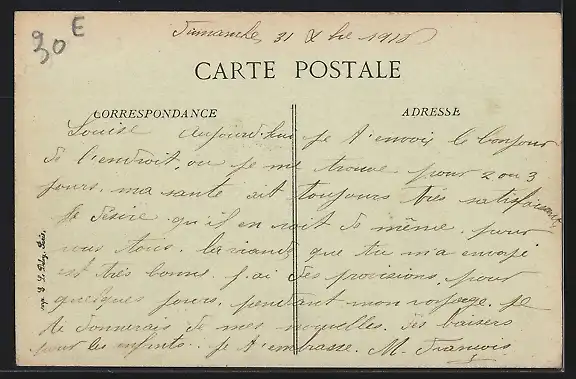 30 E
Dimanche, 31 Xbre 1918
CARTE POSTALE
CORRESPONDANCE
ADRESSE
Louise aujourd'hui je t'envois le bonjour
de l'endroit, ou je me trouve pour 2 ou 3
jours. ma santé est toujours très satisfaisante
Je désire qu'il en soit de même pour
vous tous. la viande que tu m'a envoyé
est très bonne. j'ai des provisions, pour
quelques jours, pendant mon voyage. je
te donnerais de mes nouvelles. des baisers
pour les enfants. je t'embrasse. M. François